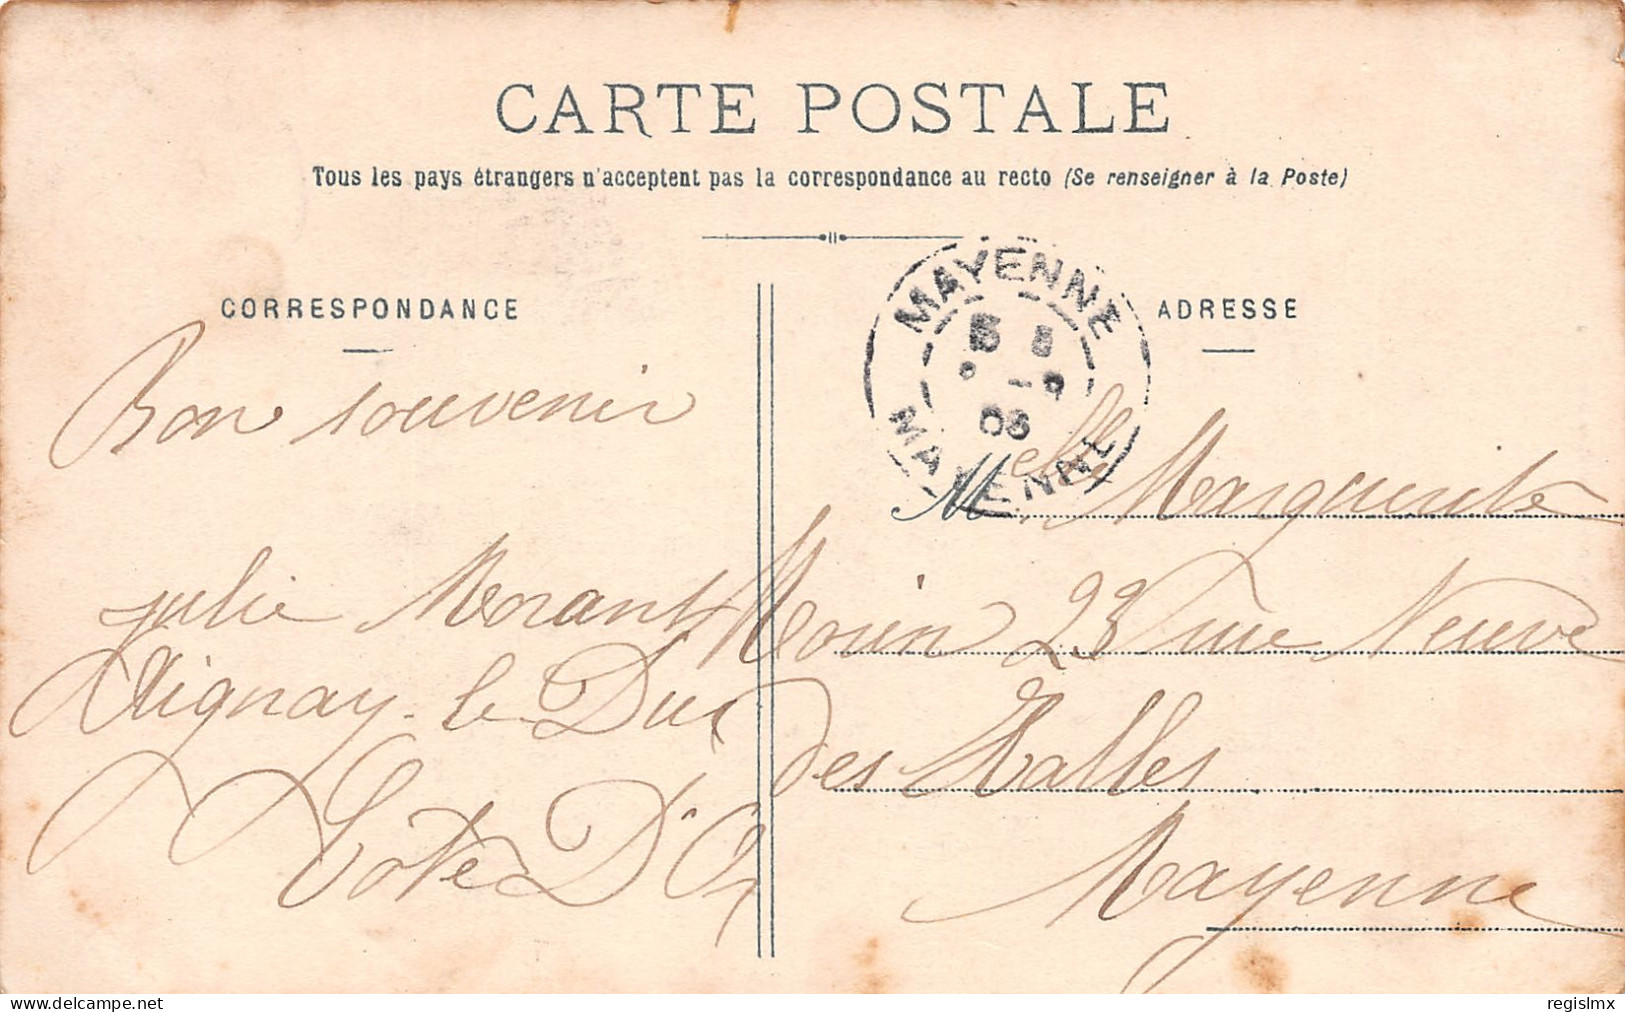 CARTE POSTALE
Tous les pays étrangers n'acceptent pas la correspondance au recto (Se renseigner à la Poste)
CORRESPONDANCE
Bon souvenir
julie Morant
Aignay-le-Duc
Côte D'Or
MAYENNE
MAYENNE
ADRESSE
Melle Marguerite
Morin 23 rue Neuve
des Halles
Mayenne
www.delcampe.net
regislmx